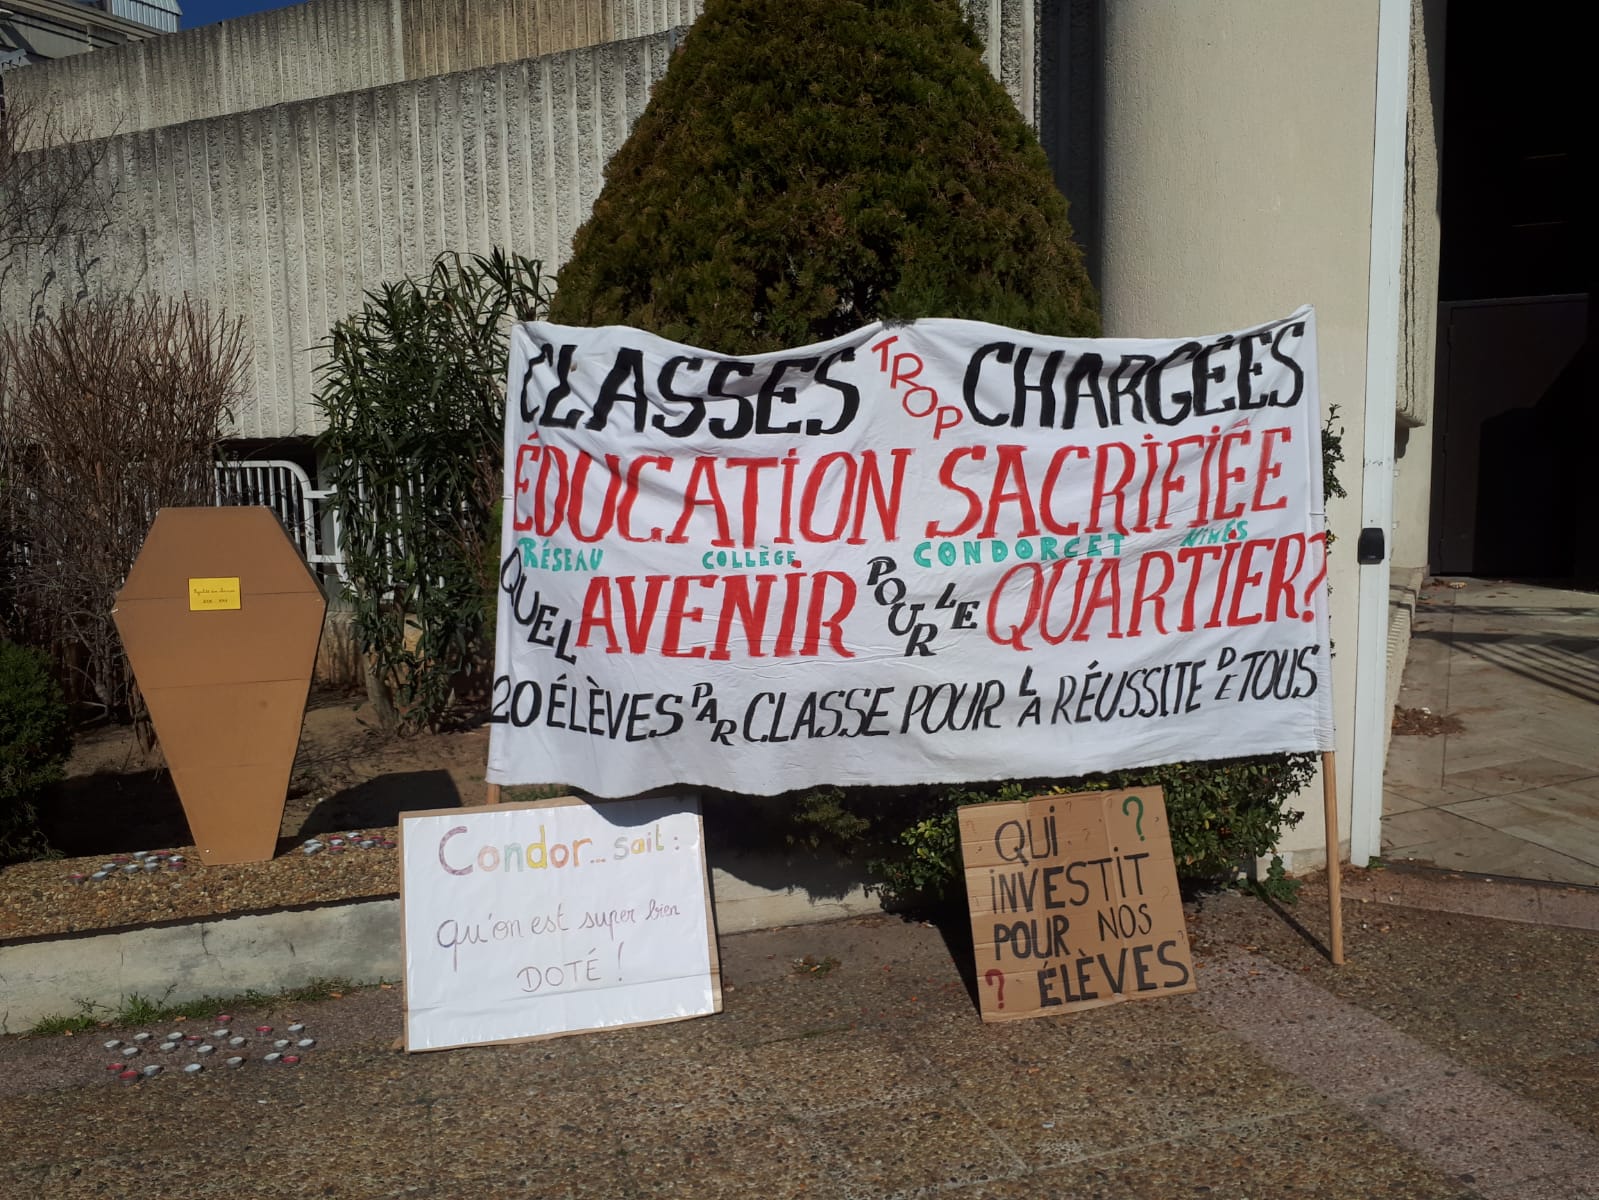 CLASSES TROP CHARGÉES
ÉDUCATION SACRIFIÉE
RÉSEAU COLLÈGE CONDORCET NIMES
QUEL AVENIR POUR LE QUARTIER?
20 ÉLÈVES PAR CLASSE POUR LA RÉUSSITE DE TOUS
Condor... sait :
qu'on est super bien
DOTÉ !
QUI ?
INVESTIT
POUR NOS
? ÉLÈVES